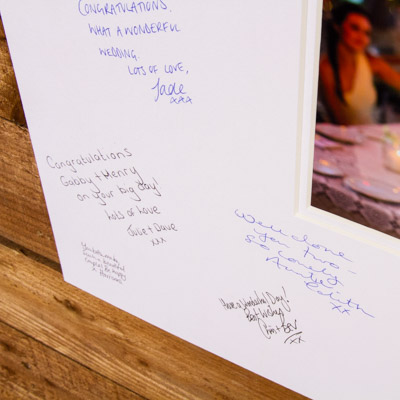 CONGRATULATIONS.
WHAT A WONDERFUL
WEDDING.
LOTS OF LOVE,
Jade
xxx
Congratulations
Gabby + Henry
on your big day!
Lots of love
Julie + Dave
xxx
Well done
you two -
so lovely
Auntie
Edith
xx
Have a Wonderful Day!
Best wishes
Jim + Bev
xx